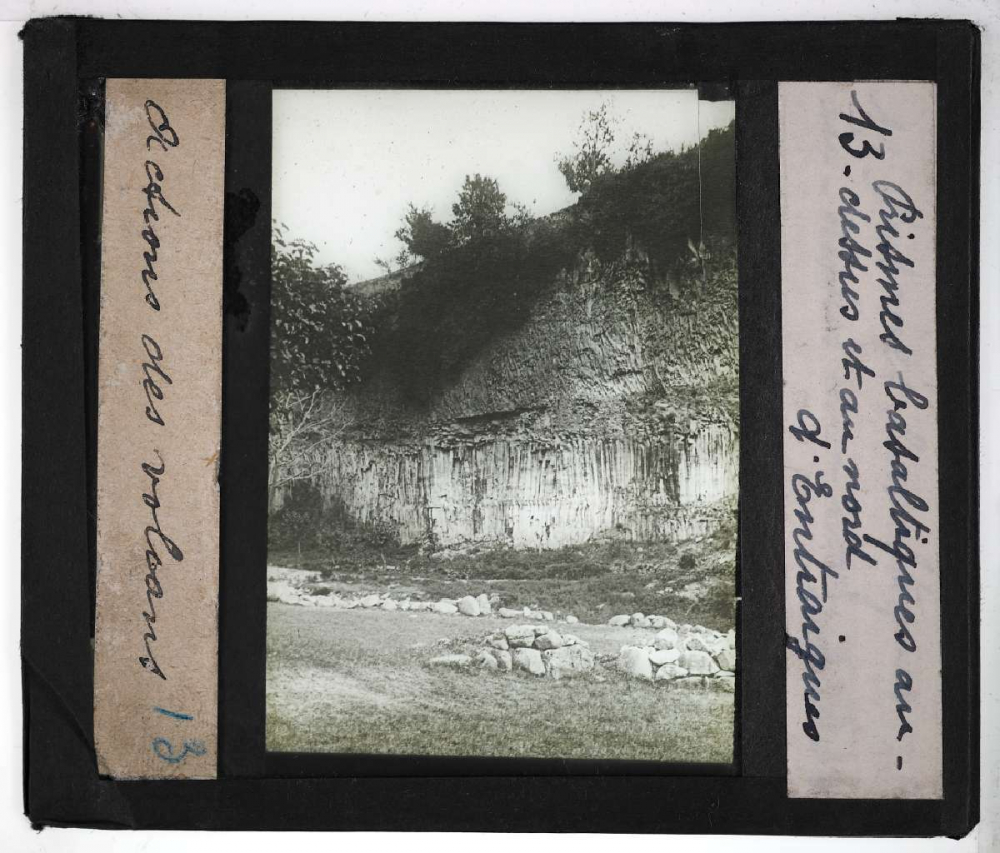 Actions des volcans 13
Prismes basaltiques au-
13-dessus et au nord
d'Entraigues